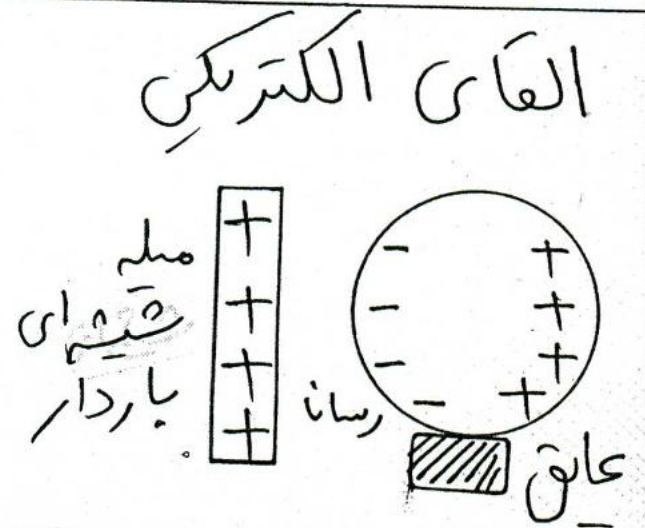 القای الکتریکی
میله
شیشه ای
باردار
+
+
+
+
رسانا
-
-
-
-
+
+
+
+
عایق